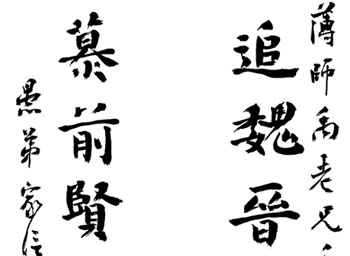 薄師禹老兄
追魏晉
慕前賢
愚弟家信